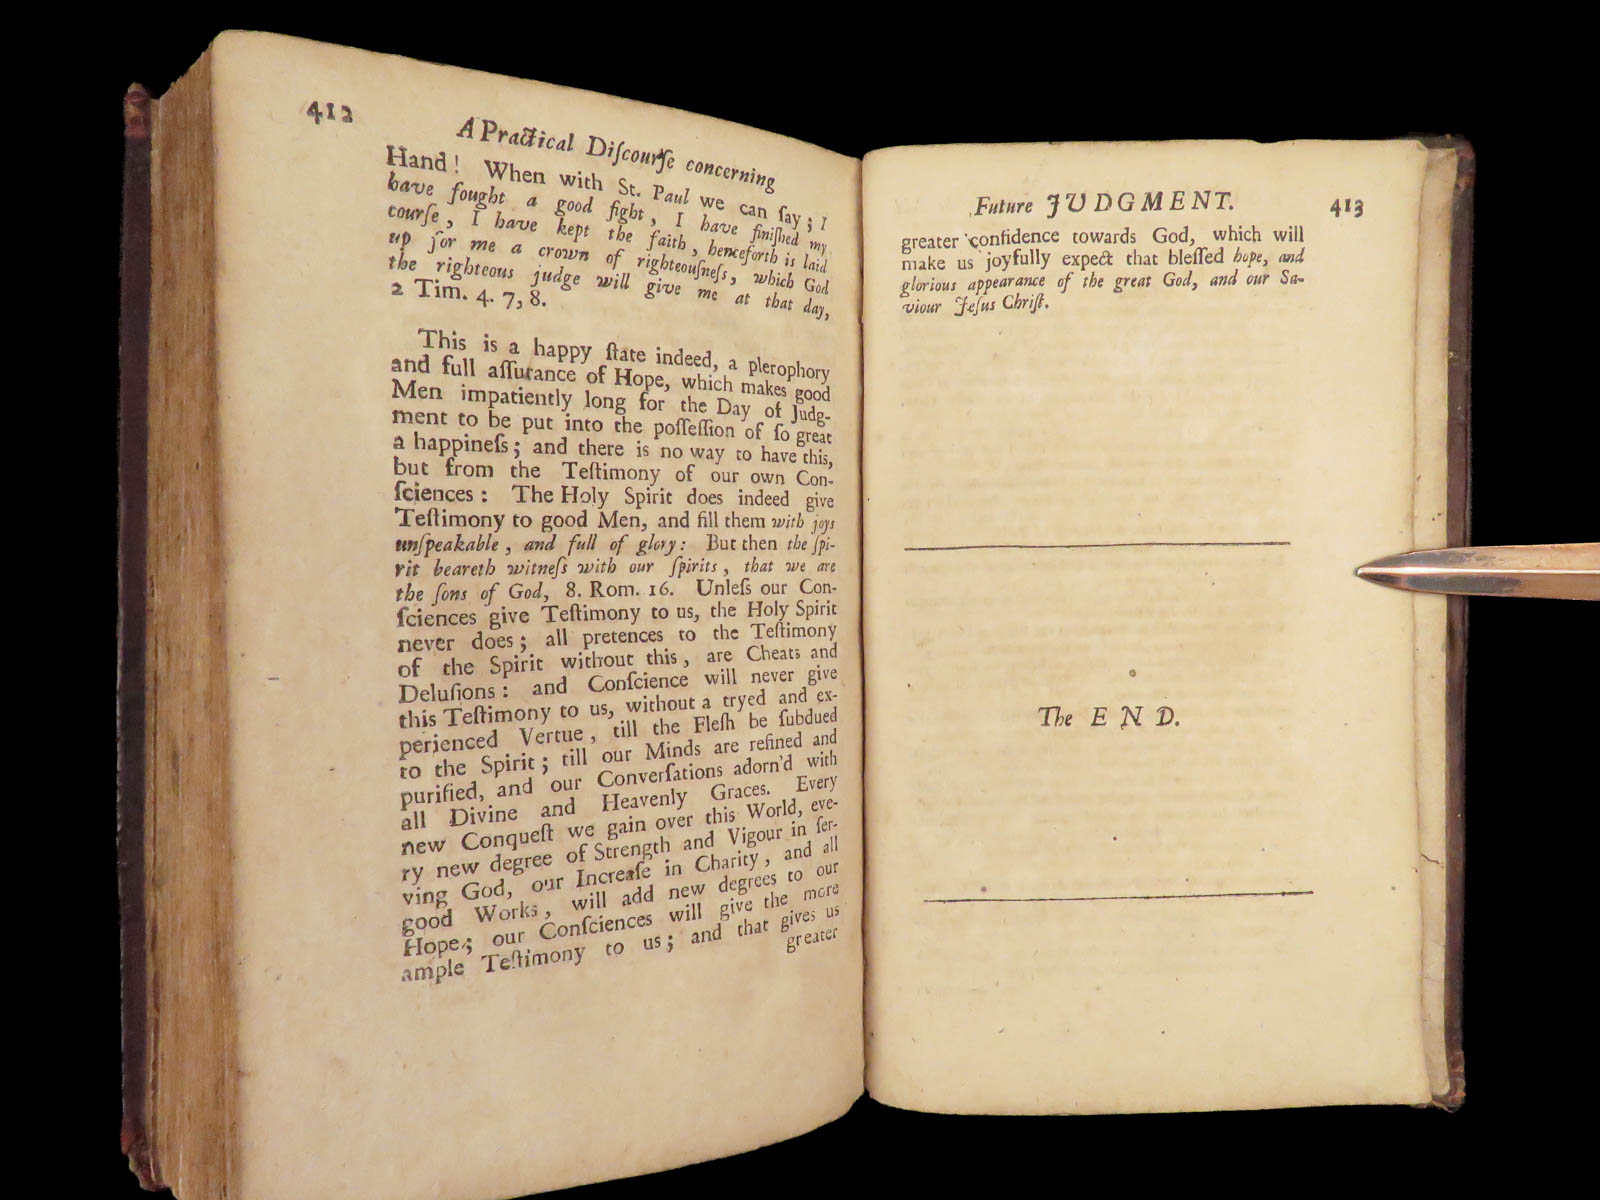 412
A Practical Diſcourſe concerning
Hand! When with St. Paul we can ſay; I
have fought a good fight, I have finiſhed my
courſe, I have kept the faith, henceforth is laid
up for me a crown of righteouſneſs, which God
the righteous judge will give me at that day,
2 Tim. 4. 7, 8.
This is a happy ſtate indeed, a plerophory
and full aſſurance of Hope, which makes good
Men impatiently long for the Day of Judg-
ment to be put into the poſſeſſion of ſo great
a happineſs; and there is no way to have this,
but from the Teſtimony of our own Con-
ſciences: The Holy Spirit does indeed give
Teſtimony to good Men, and fill them with joys
unſpeakable, and full of glory: But then the ſpi-
rit beareth witneſs with our ſpirits, that we are
the ſons of God, 8. Rom. 16. Unleſs our Con-
ſciences give Teſtimony to us, the Holy Spirit
never does; all pretences to the Teſtimony
of the Spirit without this, are Cheats and
Deluſions: and Conſcience will never give
this Teſtimony to us, without a tryed and ex-
perienced Vertue, till the Fleſh be ſubdued
to the Spirit; till our Minds are refined and
purified, and our Converſations adorn'd with
all Divine and Heavenly Graces. Every
new Conqueſt we gain over this World, eve-
ry new degree of Strength and Vigour in ſer-
ving God, our Increaſe in Charity, and all
good Works, will add new degrees to our
Hope; our Conſciences will give the more
ample Teſtimony to us; and that gives us
greater
Future JUDGMENT. 413
greater confidence towards God, which will
make us joyfully expect that bleſſed hope, and
glorious appearance of the great God, and our Sa-
viour Jeſus Chriſt.
The END.